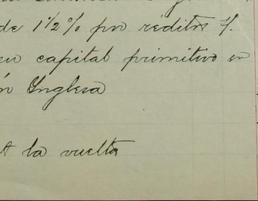 de 1½% por reditos f.
su capital primitivo en
ón Inglesa
A la vuelta